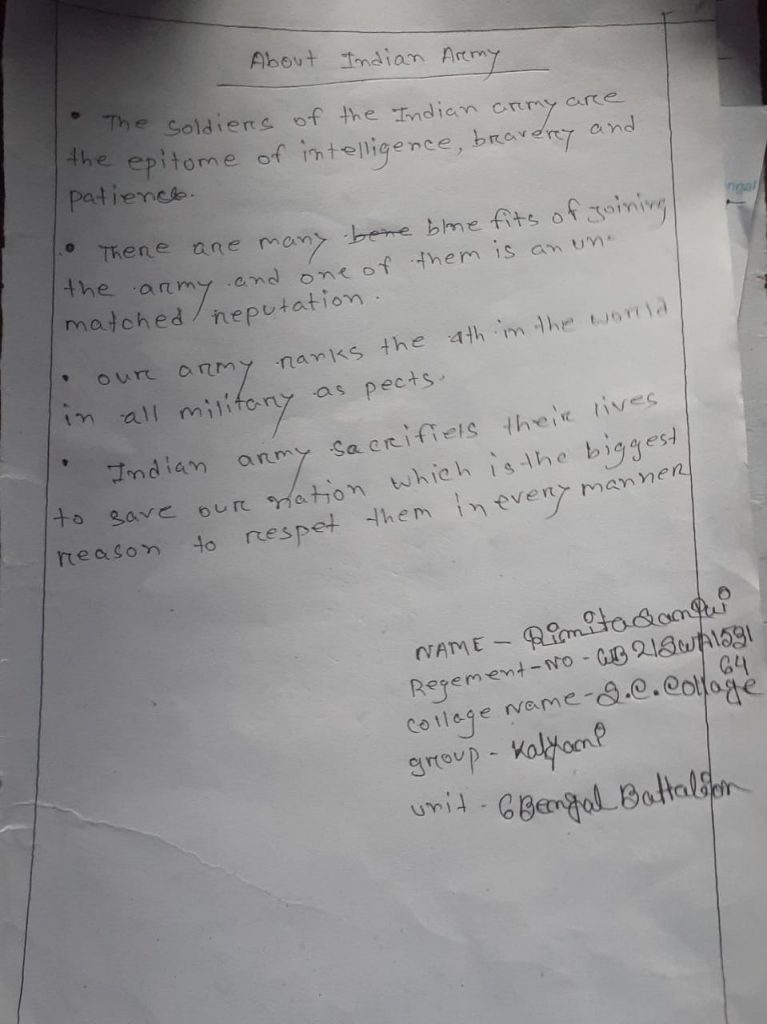 About Indian Army
• The soldiers of the Indian army are
the epitome of intelligence, bravery and
patience.
• There are many bene bine fits of joining
the army and one of them is an un-
matched reputation.
• our army ranks the 4th in the world
in all military as pects.
• Indian army sacrifies their lives
to save our nation which is the biggest
reason to respet them in every manner
ngal
NAME - Rimita
Regement-No - WB21SWA1591
64
collage Name - S.C. Collage
group - Kalyani
unit - 6 Bengal Battalion